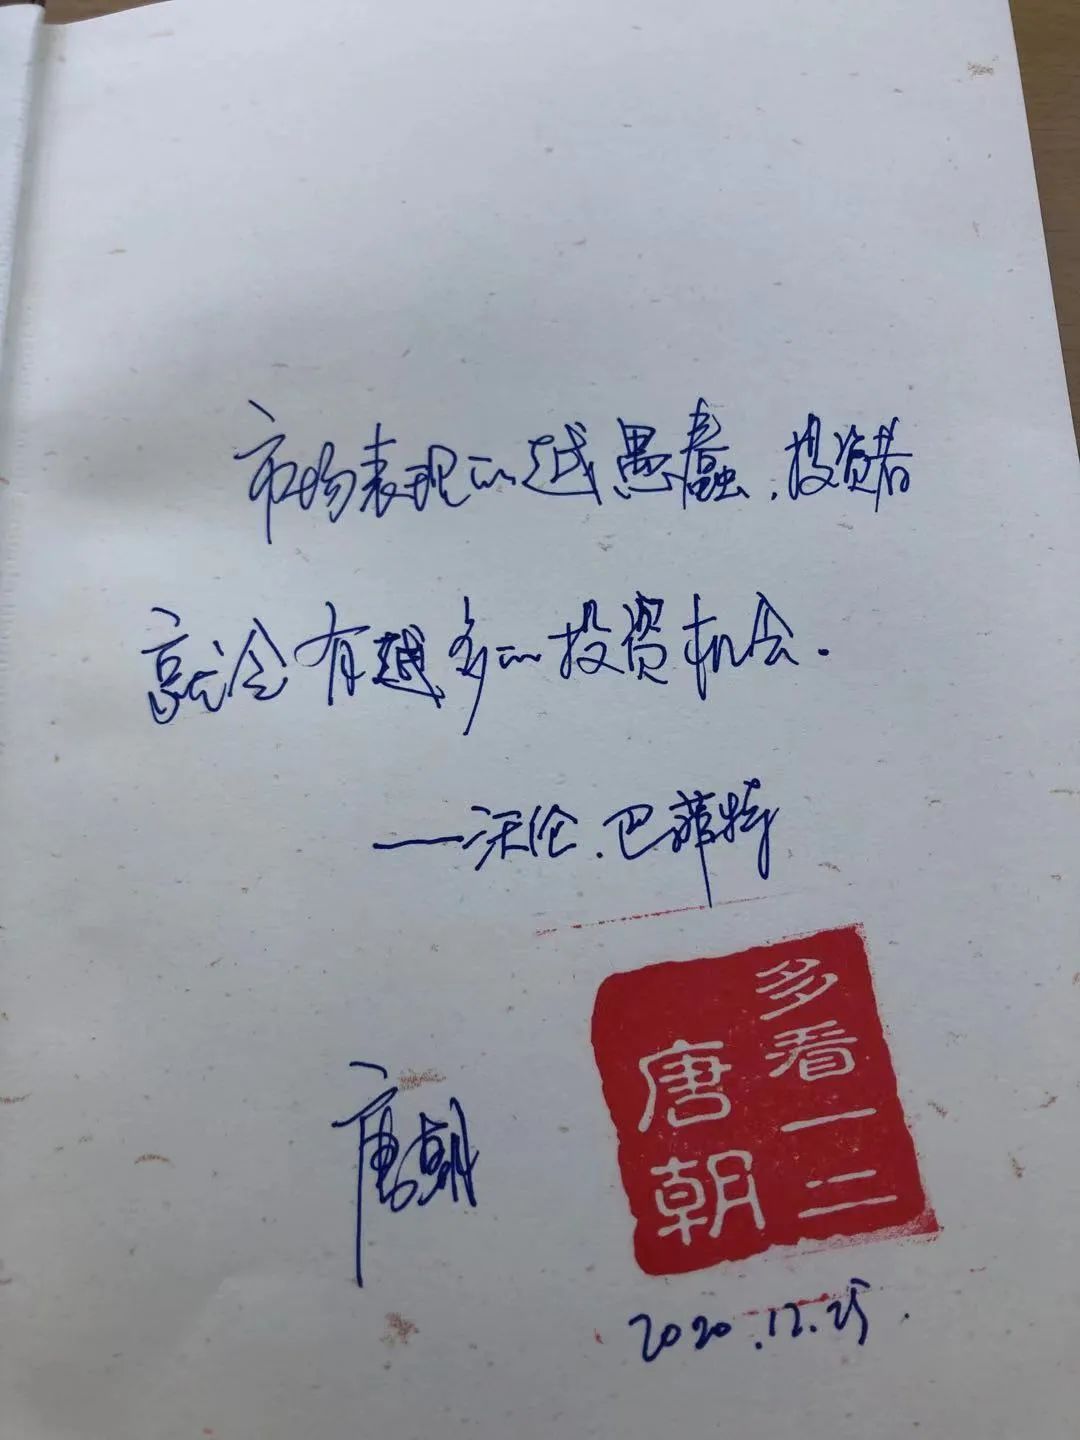 市场表现的越愚蠢，投资者
就会有越多的投资机会.
——沃伦.巴菲特
唐朝
多看一二
唐朝
2020.12.25.